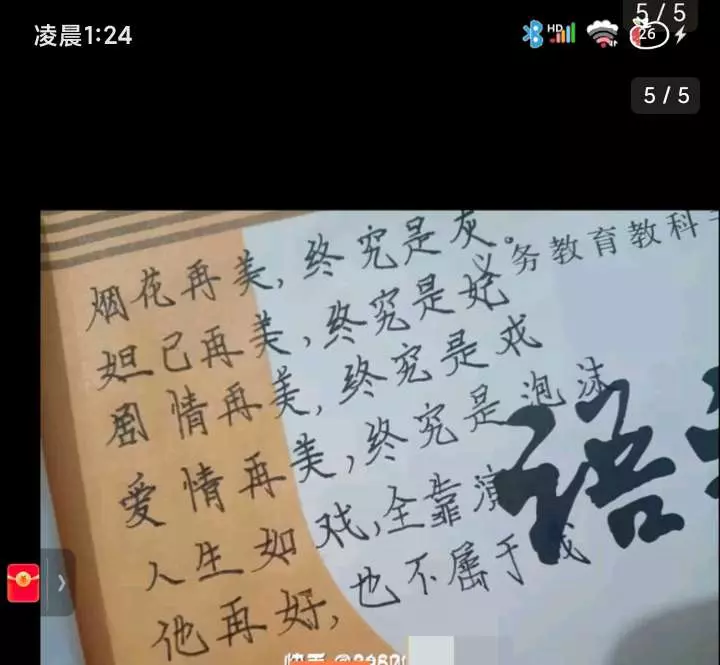 凌晨1:24
HD
26
5 / 5
5 / 5
烟花再美,终究是灰。
义务教育教科
妲己再美,终究是妃
剧情再美,终究是戏
爱情再美,终究是泡沫
语
人生如戏,全靠演
他再好,也不属于我
快手